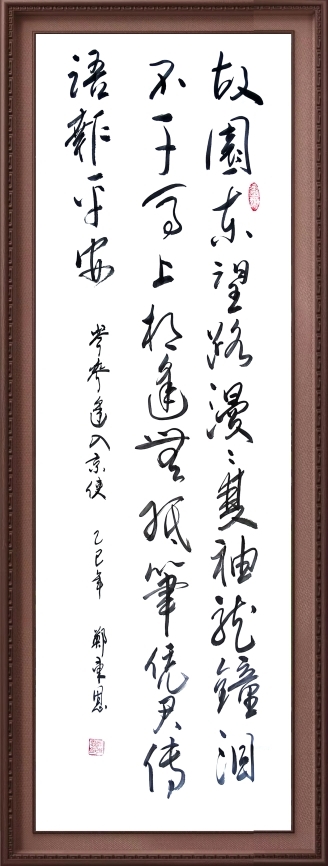 故園東望路漫〻雙袖龍鐘淚
不干馬上相逢無紙筆憑君傳
語報平安
岑參逢入京使 乙巳年 鄭東恩